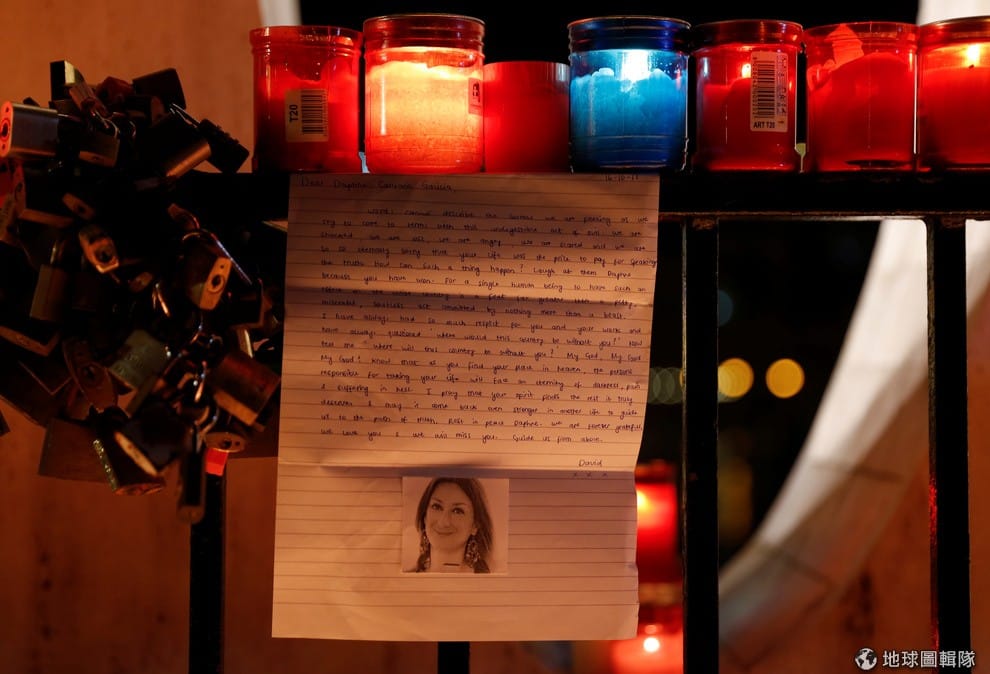 T20
ART T20
Dear Daphne Caruana Galizia 16-10-17
Words cannot describe the horror we are feeling as we
try to come to terms with this act of evil. We are
shocked, we are sad, we are angry, we are scared and we are
so so eternally sorry that your life was the price to pay for speaking
the truth. How can such a thing happen? Laugh at them Daphne
because you have won. For a single human being to have such an
effect on an entire country is a feat far greater than a
, soulless act committed by nothing more than a beast.
I have always had so much respect for you and your work and
have always questioned 'where would this country be without you?' Now
tell me where will this country be without you? My God, My God,
My God! Know that as you find your place in heaven, the persons
responsible for taking your life will face an eternity of darkness, pain
& suffering in hell. I pray that your spirit finds the rest it truly
deserves & may it come back even stronger in another life to guide
us to the path of truth. Rest in peace Daphne. We are forever grateful,
we love you & we will miss you. Guide us from above.
David
x x x
地球圖輯隊